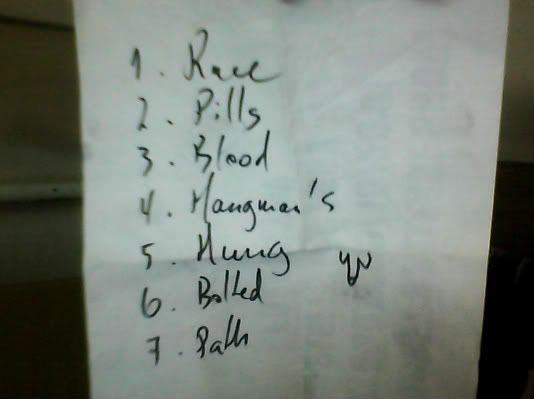 1. Race
2. Pills
3. Blood
4. Hangman's
5. Hung
6. Bolted
7. Path